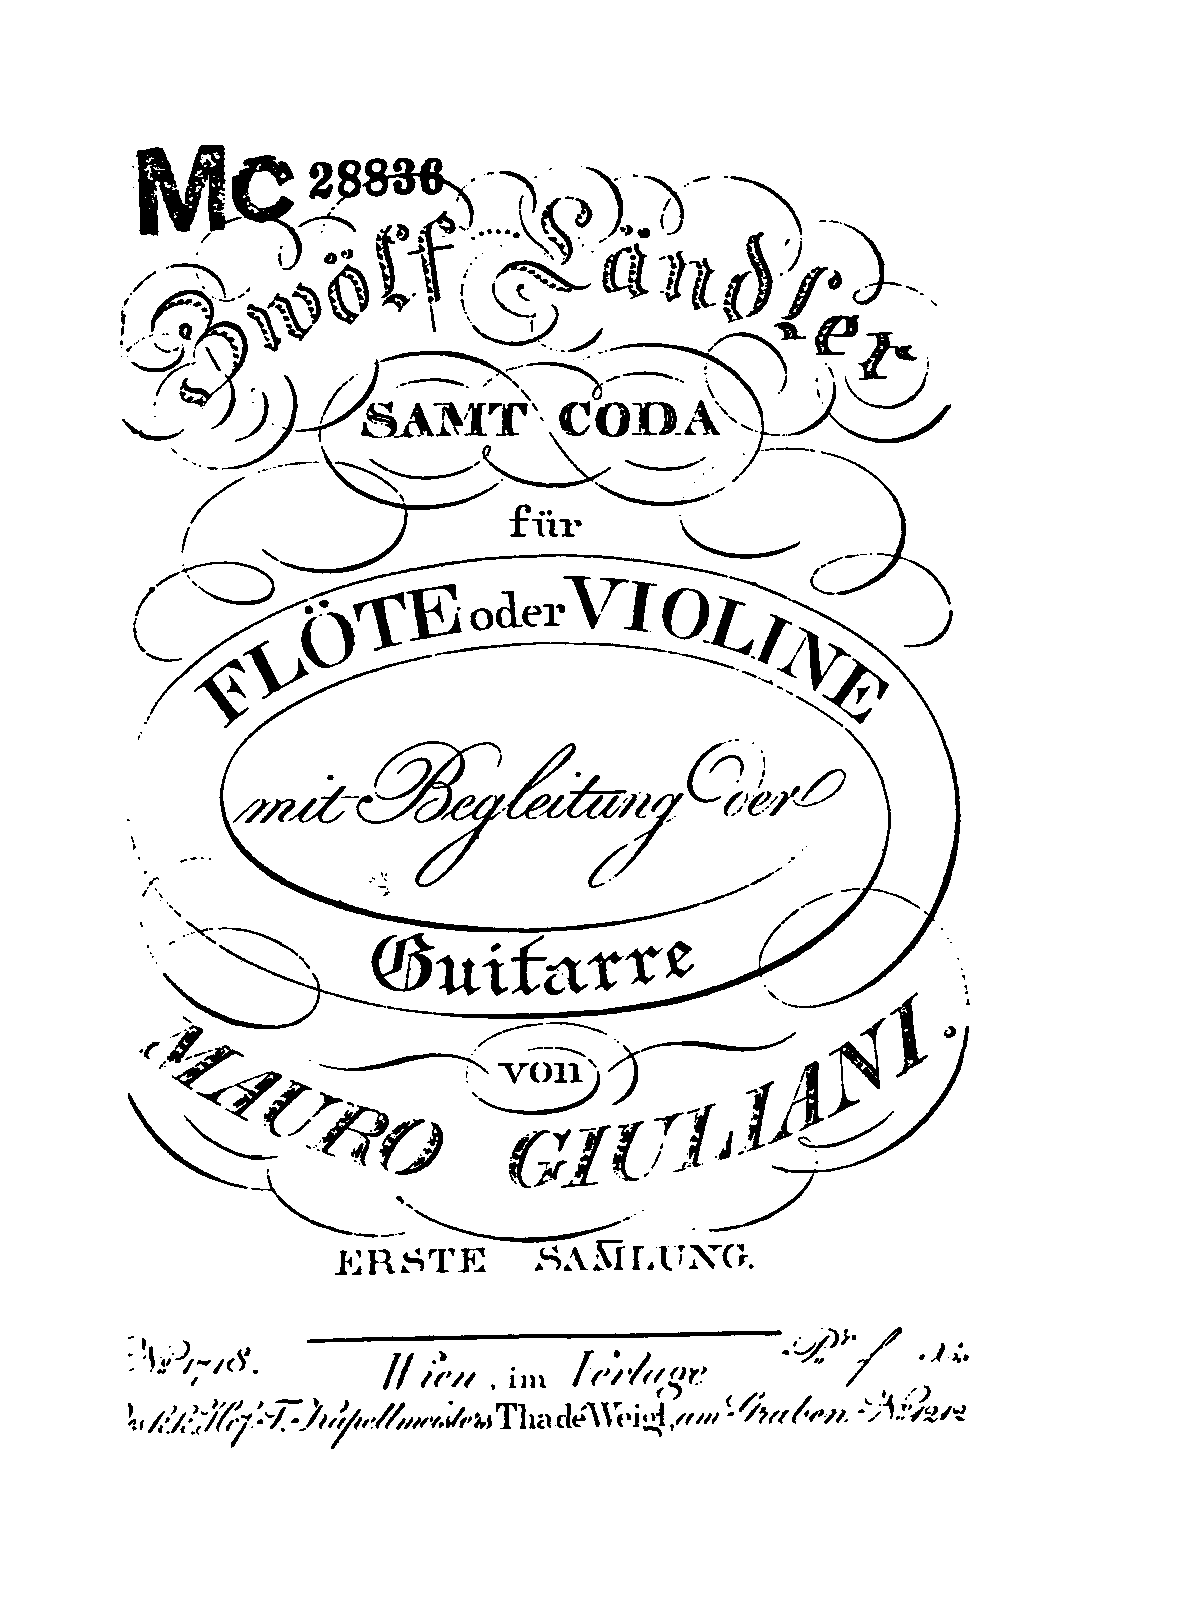 Mc 28836
Zwölf Ländler
SAMT CODA
für
FLÖTE oder VIOLINE
mit Begleitung der
Guitarre
von
MAURO GIULIANI.
ERSTE SAM̅LUNG.
No 1718. Pr. f
Wien, im Verlage
des k.k. Hof-T.-Kapellmeisters Thadé Weigl, am Graben No 1212